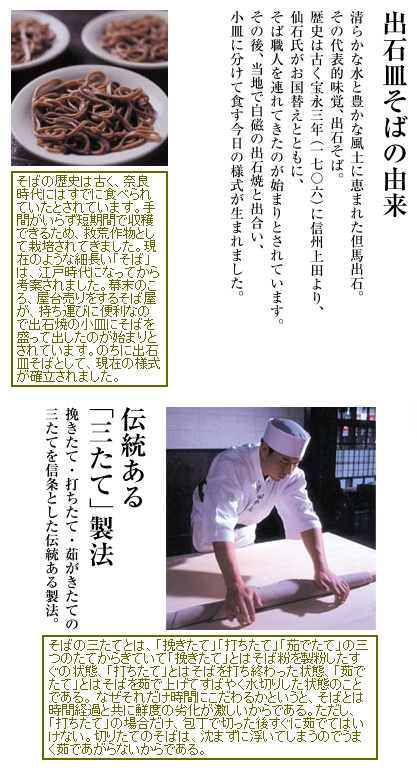 出石皿そばの由来
清らかな水と豊かな風土に恵まれた但馬出石。
その代表的味覚、出石そば。
歴史は古く宝永三年(一七〇六)に信州上田より、
仙石氏がお国替えとともに、
そば職人を連れてきたのが始まりとされています。
その後、当地で白磁の出石焼と出合い、
小皿に分けて食す今日の様式が生まれました。
そばの歴史は古く、奈良
時代にはすでに食べられ
ていたとされています。手
間がいらず短期間で収穫
できるため、救荒作物とし
て栽培されてきました。現
在のような細長い「そば」
は、江戸時代になってから
考案されました。幕末のこ
ろ、屋台売りをするそば屋
が、持ち運びに便利なの
で出石焼の小皿にそばを
盛って出したのが始まりと
されています。のちに出石
皿そばとして、現在の様式
が確立されました。
伝統ある
「三たて」製法
挽きたて・打ちたて・茹がきたての
三たてを信条とした伝統ある製法。
そばの三たてとは、「挽きたて」「打ちたて」「茹でたて」の三
つのたてからきていて「挽きたて」とはそば粉を製粉したす
ぐの状態、「打ちたて」とはそばを打ち終わった状態、「茹で
たて」とはそばを茹で上げてすばやく水切りした状態のこと
である。なぜそれだけ時間にこだわるかというと、そばとは
時間経過と共に鮮度の劣化が激しいからである。ただし、
「打ちたて」の場合だけ、包丁で切った後すぐに茹でてはい
けない。切りたてのそばは、沈まずに浮いてしまうのでうま
く茹であがらないからである。